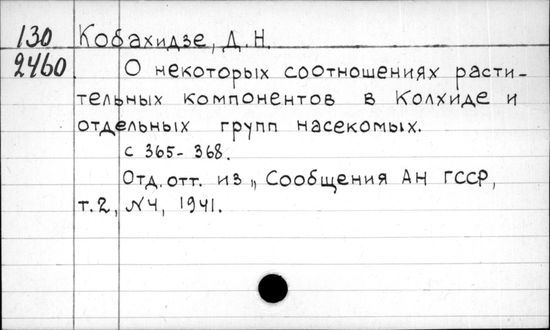 130 Кобахидзе, Д.Н.
2460 О некоторых соотношениях расти-
тельных компонентов в Колхиде и
отдельных групп насекомых.
с 365-368.
Отд. отт. из „Сообщения АН ГССР,
т.2, №4, 1941.